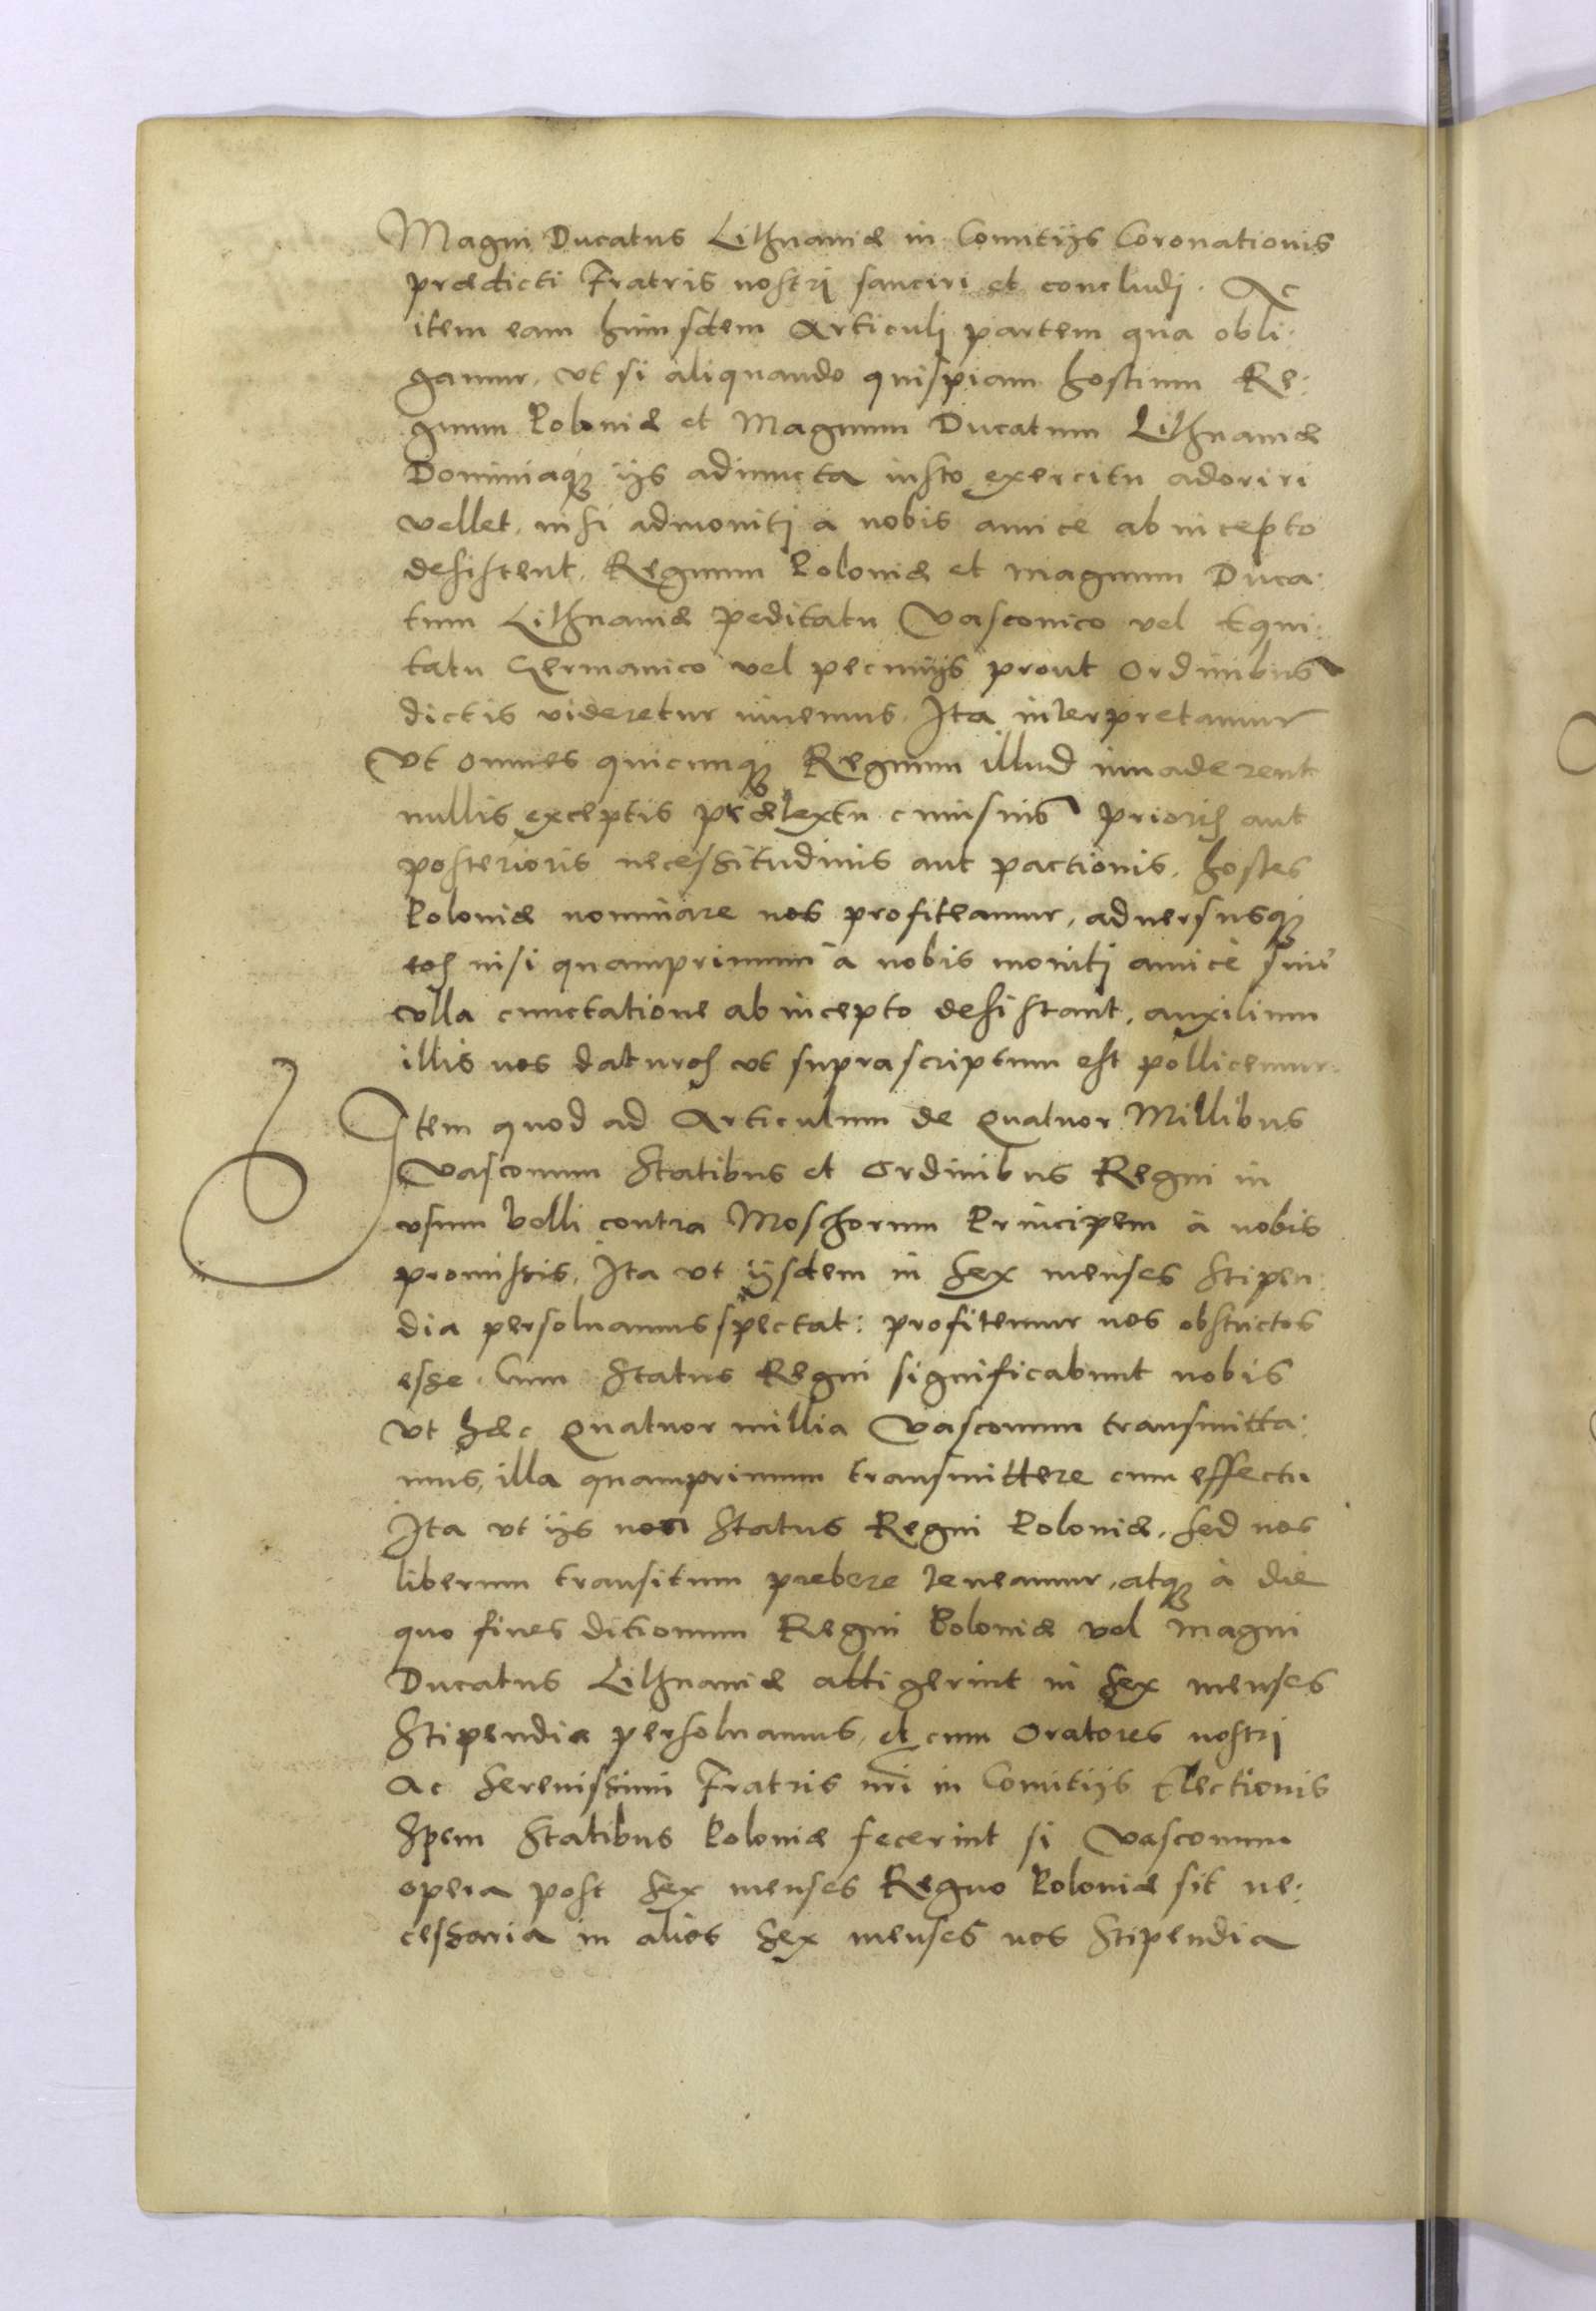 Magni Ducatus Lithuaniæ in Comitijs Coronationis
prædicti Fratris nostri sanciri et concludj. Ac
item eam huiusdem Articulj partem qua obli:
gamur, ut si aliquando quispiam hostium Re:
gnum Poloniæ et Magnum Ducatum Lithuaniæ
Dominiaq3 ijs adiuncta iusto exercitu adoriri
vellet, nisi admonitj à nobis amicè ab incepto
desistent, Regnum Poloniæ et magnum Duca:
tum Lithuaniæ peditatu Vasconico vel Equi:
tatu Germanico vel pecunijs prout Ordinibus
dictis videretur iuuemus, Ita interpretamur
Vt omnes quicunq3 Regnum illud inuaderent
nullis exceptis prætextu cuiusuis prioris aut
posterioris necessitudinis aut pactionis, hostes
Poloniæ nominare nos profiteamur, aduersusq3
eos nisi quamprimum à nobis monitj amicè sine
vlla cunctatione ab incepto desistant, auxilium
illis nos daturos vt suprascriptum est pollicemur.
Item quod ad Articulum de Quatuor Millibus
Vasconum Statibus et Ordinibus Regni in
vsum belli contra Moschorum Principem à nobis
promissis, Ita vt ijsdem in Sex menses Stipen:
dia persoluamus spectat: profitemur nos obstrictos
esse. Cum Status Regni significabunt nobis
vt hæc Quatuor millia Vasconum transmitta:
mus, illa quamprimum transmittere cum effectu
Ita vt ijs non Status Regni Poloniæ, sed nos
liberum transitum præbere teneamur, atq3 à die
quo fines ditionum Regni Poloniæ vel Magni
Ducatus Lithuaniæ attigerint in Sex menses
Stipendia persoluamus, et cum Oratores nostri
Ac Serenissimi Fratris nri in Comitijs Electionis
Spem Statibus Poloniæ fecerint si Vasconum
opera post Sex menses Regno Poloniæ sit ne:
cessaria in alios Sex menses nos Stipendia